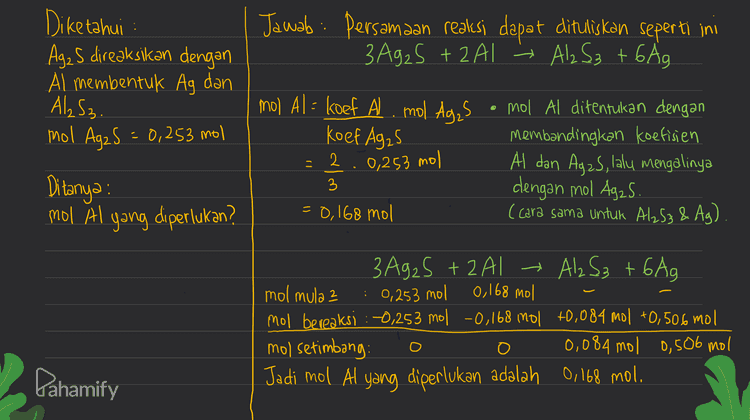 Diketahui :
Ag₂S direaksikan dengan
Al membentuk Ag dan
Al₂S₃.
mol Ag₂S = 0,253 mol
Ditanya :
mol Al yang diperlukan?
Jawab : Persamaan reaksi dapat dituliskan seperti ini
3Ag₂S + 2Al → Al₂S₃ + 6Ag
mol Al = koef Al . mol Ag₂S
koef Ag₂S
= 2 . 0,253 mol
3
= 0,168 mol
• mol Al ditentukan dengan
membandingkan koefisien
Al dan Ag₂S, lalu mengalinya
dengan mol Ag₂S.
(cara sama untuk Al₂S₃ & Ag).
3Ag₂S + 2Al → Al₂S₃ + 6Ag
mol mula2 : 0,253 mol 0,168 mol – –
mol bereaksi : -0,253 mol -0,168 mol +0,084 mol +0,506 mol
mol setimbang: 0 0 0,084 mol 0,506 mol
Jadi mol Al yang diperlukan adalah 0,168 mol.
Pahamify